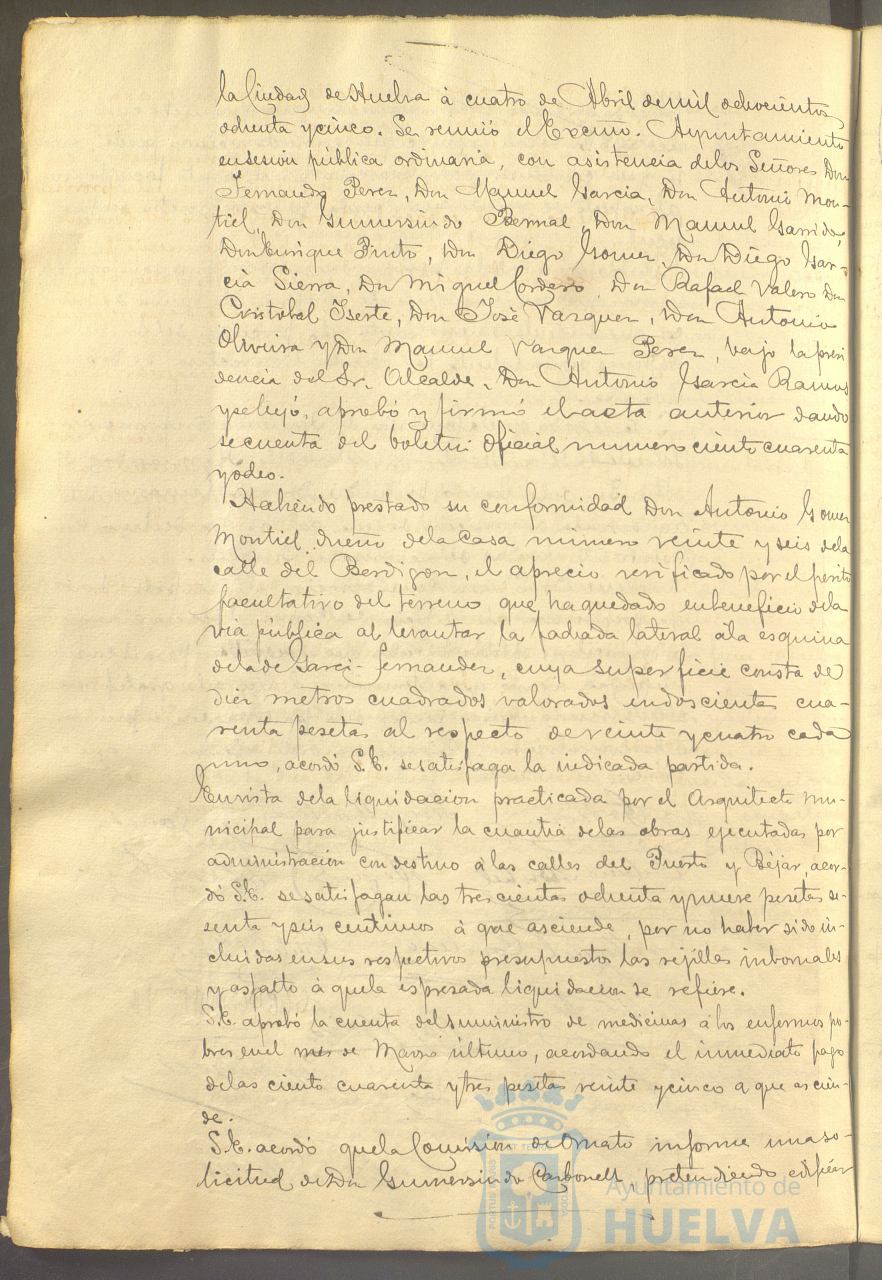 la Ciudad de Huelva á cuatro de Abril de mil ochocientos
ochenta y cinco. Se reunió el Excmo. Ayuntamiento
en sesión pública ordinaria, con asistencia de los Señores Don
Fernando Perez, Don Manuel Garcia, Don Antonio Mon-
tiel, Don Gumersindo Bernal, Don Manuel Garrido,
Don Enrique Pinto, Don Diego Gomez, Don Diego Gar-
cia Sierra, Don Miguel Cordero, Don Rafael Valero Don
Cristobal Iserte, Don José Vazquez, Don Antonio
Oliveira y Don Manuel Vazquez Perez, bajo la presi
dencia del Sr. Alcalde, Don Antonio Garcia Ramos
y se leyó, aprobó y firmó el acta anterior dando
se cuenta del boletin oficial numero ciento cuarenta
y ocho.
Habiendo prestado su conformidad Don Antonio Gomez
Montiel dueño de la Casa numero veinte y seis de la
calle del Berdigon, el aprecio verificado por el perito
facultativo del terreno que ha quedado en beneficio de la
via pública al levantar la fachada lateral á la esquina
de la de Garci-Fernandez, cuya superficie consta de
diez metros cuadrados valorados en doscientas cua-
renta pesetas al respecto de veinte y cuatro cada
uno, acordó S.E. se satisfaga la indicada partida.
En vista de la liquidacion practicada por el Arquitecto mu-
nicipal para justificar la cuantia de las obras ejecutadas por
administración con destino á las calles del Puerto y Béjar, acor-
dó S.E. se satisfagan las trescientas ochenta y nueve pesetas se-
senta y seis centimos á que asciende, por no haber sido in-
cluidas en sus respectivos presupuestos las rejillas inbornales
y asfalto á que la espresada liquidacion se refiere.
S.E. aprobó la cuenta del suministro de medicinas á los enfermos po-
bres en el mes de Marzo último, acordando el inmediato pago
de las ciento cuarenta y tres pesetas veinte y cinco a que ascien-
de.
S.E. acordó que la Comision de Ornato informe una so-
licitud de Don Gumersindo Carbonell, pretendiendo edificar
Ayuntamiento de
HUELVA